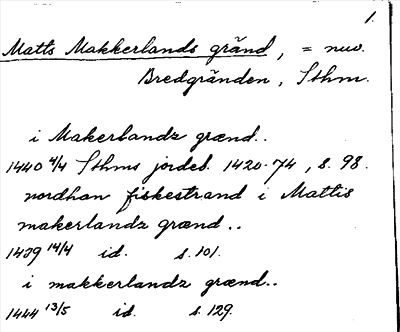 1.
Matts Makkerlands gränd, = nuv.
Bredgränden, Sthm.
i Makerlandz grænd..
1440 4/4 Sthms jordeb. 1420-74, s. 98.
nordhan fiskestrand i Mattis
makerlandz grænd..
14 14/4 id. s. 101.
i makkerlandz grænd..
1444 13/5 id. s. 129.